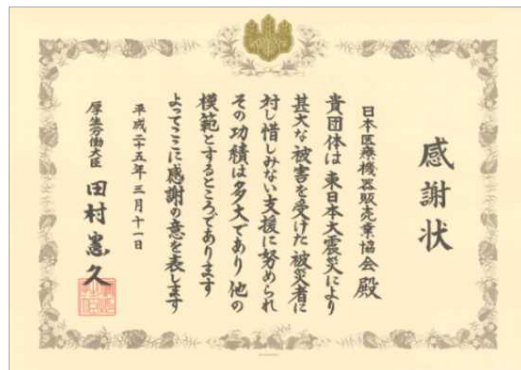 感謝状
日本医療機器販売業協会殿
貴団体は東日本大震災により
甚大な被害を受けた被災者に
対し惜しみない支援に努められ
その功績は多大であり他の
模範とするところであります
よってここに感謝の意を表します
平成二十五年三月十一日
厚生労働大臣 田村憲久